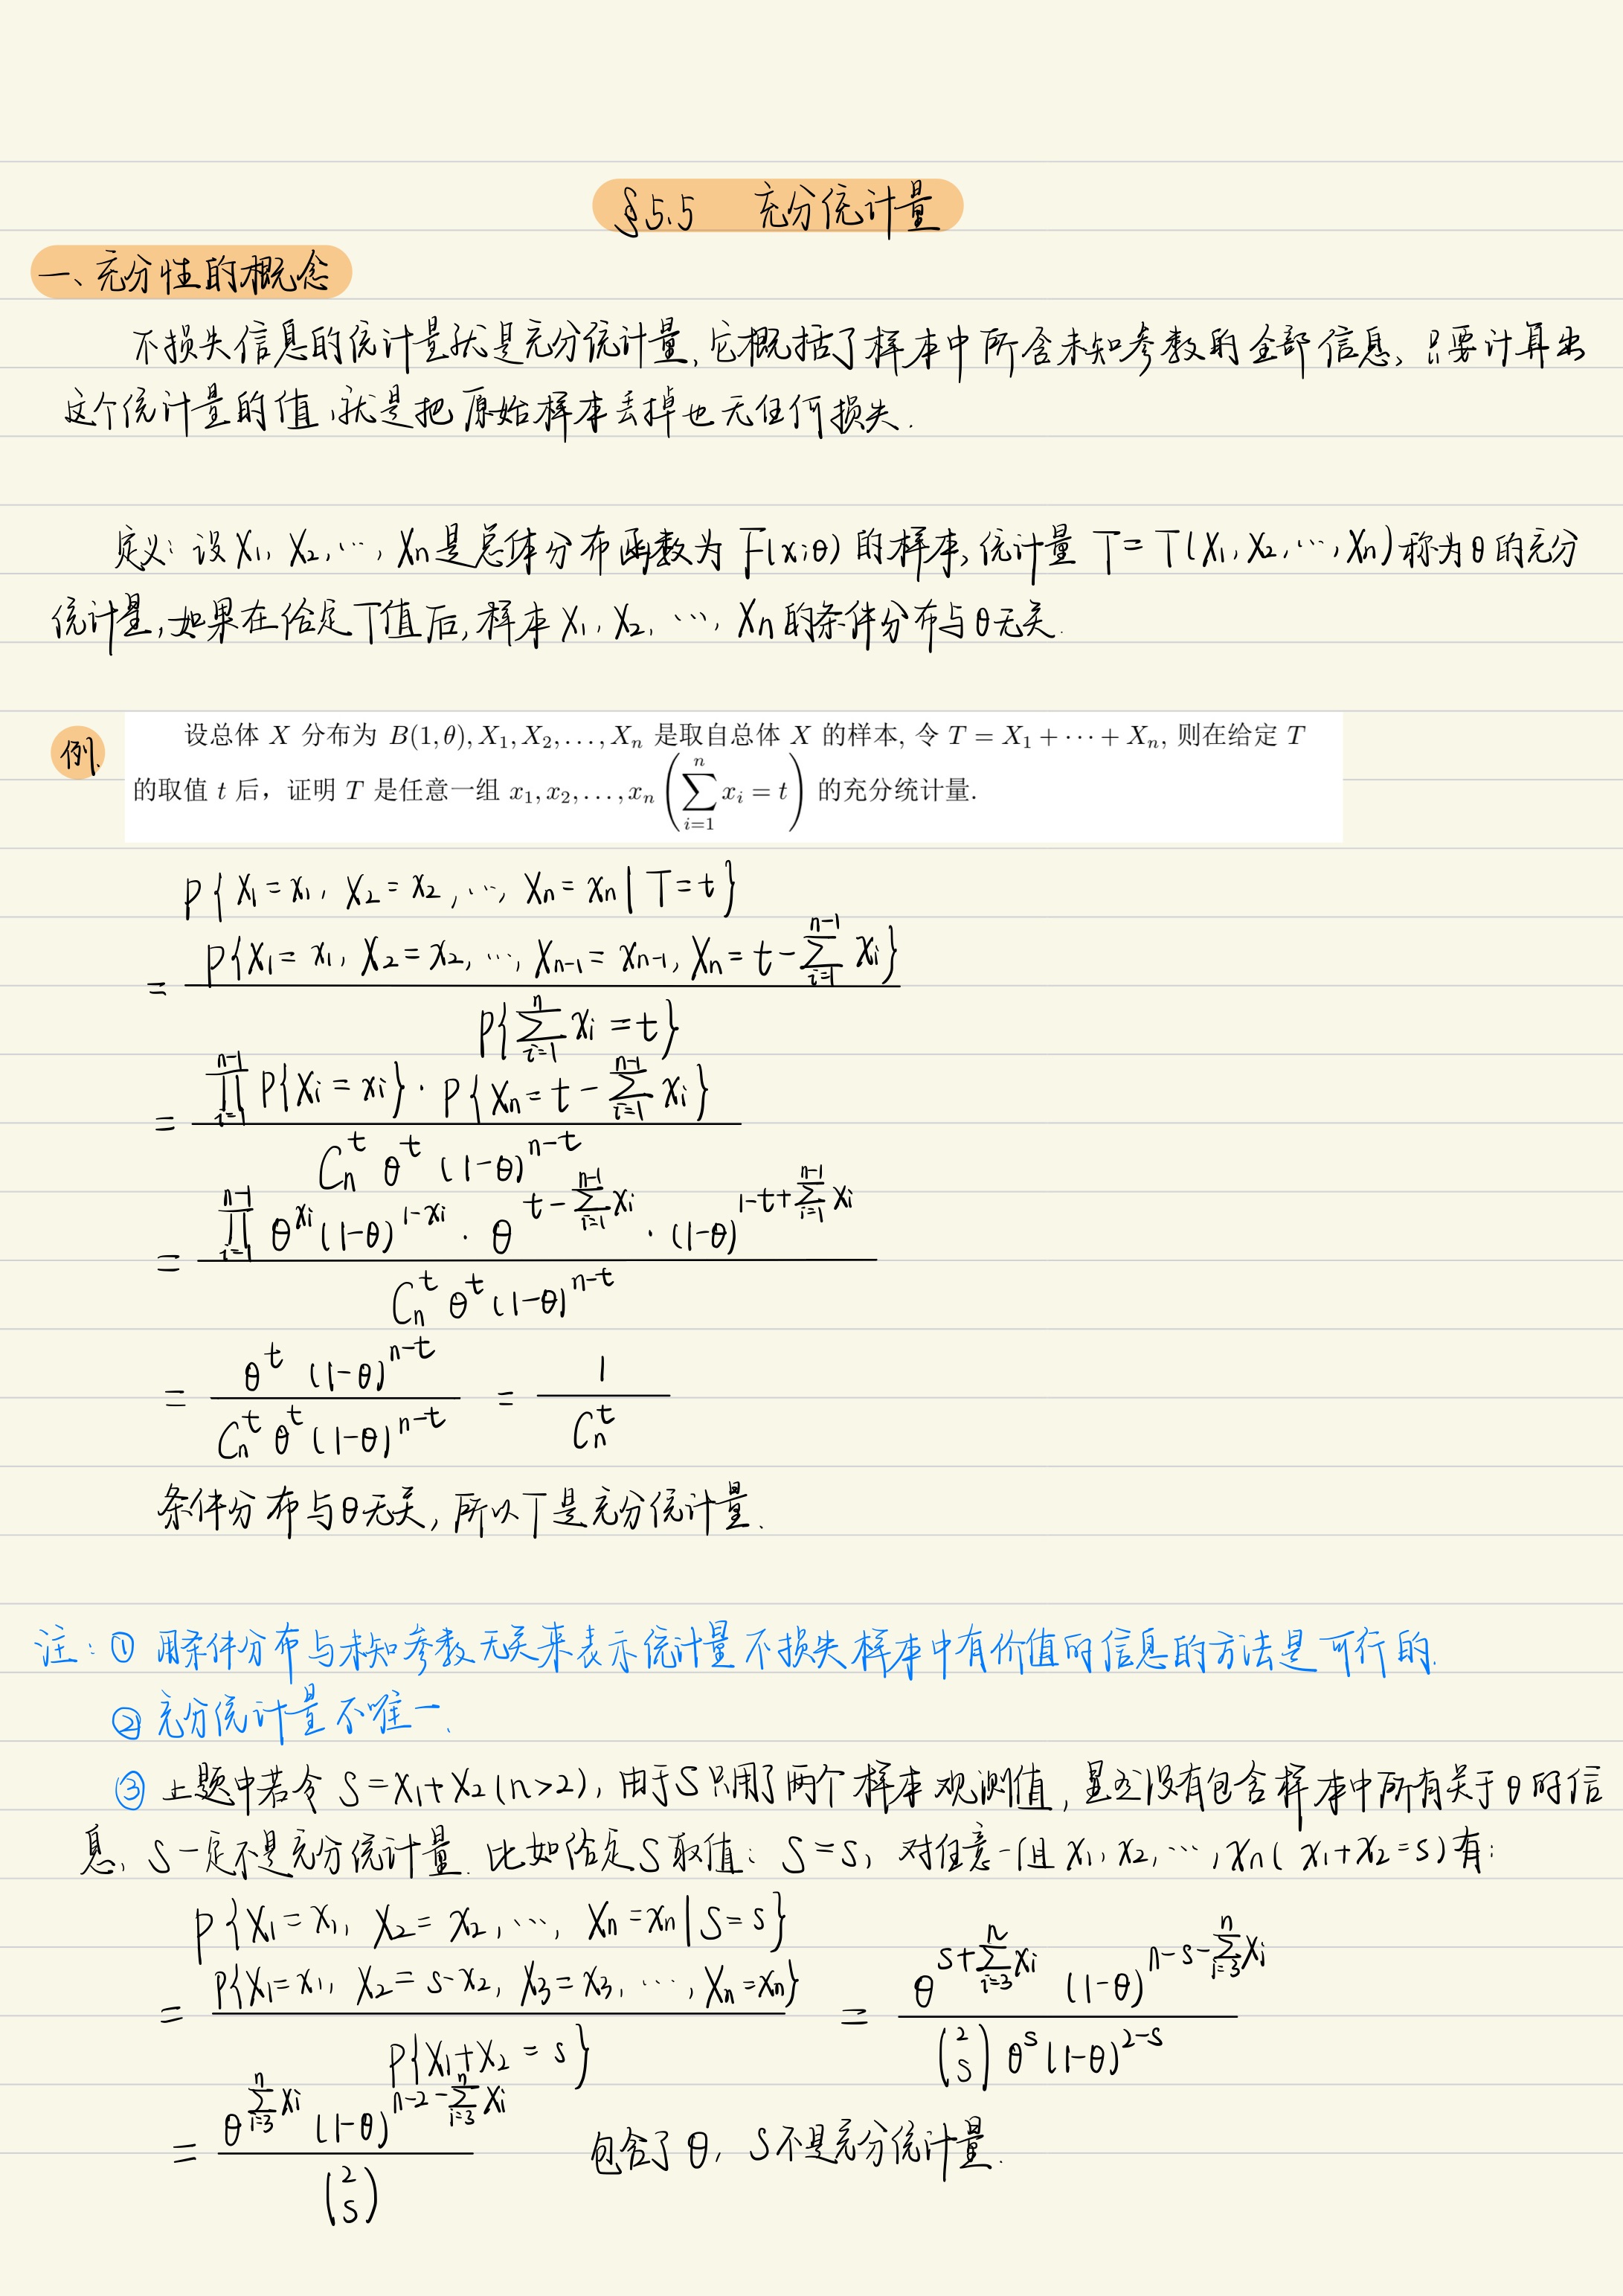 §5.5 充分统计量
一、充分性的概念
不损失信息的统计量就是充分统计量,它概括了样本中所含未知参数的全部信息,只要计算出
这个统计量的值,就是把原始样本丢掉也无任何损失.
定义:设X₁, X₂, ⋯, Xn是总体分布函数为 F(x;θ) 的样本,统计量 T = T(X₁, X₂, ⋯, Xn)称为θ的充分
统计量,如果在给定T值后,样本 X₁, X₂, ⋯, Xn的条件分布与θ无关.
例. 设总体 X 分布为 B(1,θ), X₁, X₂, …, Xₙ 是取自总体 X 的样本, 令 T = X₁ + ⋯ + Xₙ, 则在给定 T
的取值 t 后，证明 T 是任意一组 x₁, x₂, …, xₙ (∑_{i=1}^{n} x_i = t) 的充分统计量.
P{X₁=x₁, X₂=x₂, ⋯, Xn=xn | T=t}
= P{X₁=x₁, X₂=x₂, ⋯, X_{n-1}=x_{n-1}, Xn=t-∑_{i=1}^{n-1} x_i} / P{∑_{i=1}^{n} x_i=t}
= ∏_{i=1}^{n-1} P{X_i=x_i}·P{Xn=t-∑_{i=1}^{n-1} x_i} / C_n^t θ^t (1-θ)^{n-t}
= ∏_{i=1}^{n-1} θ^{x_i}(1-θ)^{1-x_i}·θ^{t-∑_{i=1}^{n-1} x_i}·(1-θ)^{1-t+∑_{i=1}^{n-1} x_i} / C_n^t θ^t (1-θ)^{n-t}
= θ^t (1-θ)^{n-t} / C_n^t θ^t (1-θ)^{n-t} = 1 / C_n^t
条件分布与θ无关,所以T是充分统计量.
注:① 用条件分布与未知参数无关来表示统计量不损失样本中有价值的信息的方法是可行的.
② 充分统计量不唯一.
③ 上题中若令 S=X₁+X₂(n>2),由于S只用了两个样本观测值,显然没有包含样本中所有关于θ的信
息, S一定不是充分统计量. 比如给定S取值: S=s, 对任意一组 x₁, x₂, ⋯, xn( x₁+x₂=s)有:
P{X₁=x₁, X₂=x₂, ⋯, Xn=xn | S=s}
= P{X₁=x₁, X₂=s-x₂, X₃=x₃, ⋯, Xn=xn} / P{X₁+X₂=s} = θ^{s+∑_{i=3}^{n} x_i} (1-θ)^{n-s-∑_{i=3}^{n} x_i} / (2 s) θ^s (1-θ)^{2-s}
= θ^{∑_{i=3}^{n} x_i} (1-θ)^{n-2-∑_{i=3}^{n} x_i} / (2 s) 包含了θ, S不是充分统计量.